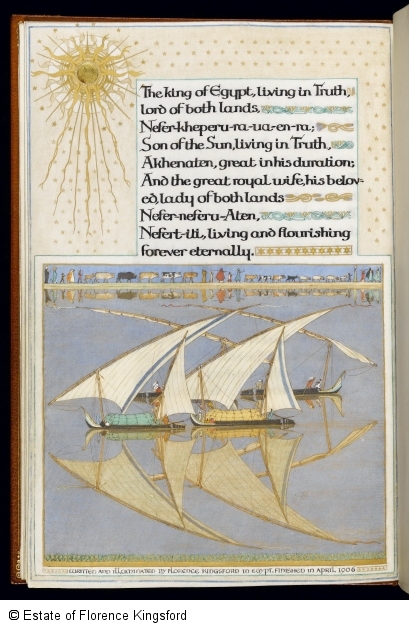 The king of Egypt, living in Truth,
lord of both lands,
Nefer-kheperu-ra-ua-en-ra;
Son of the Sun, living in Truth,
Akhenaten, great in his duration;
And the great royal wife, his belov-
ed, lady of both lands
Nefer-neferu-Aten,
Nefert-iti, living and flourishing
forever eternally.
WRITTEN AND ILLUMINATED BY FLORENCE KINGSFORD IN EGYPT. FINISHED IN APRIL 1906
© Estate of Florence Kingsford